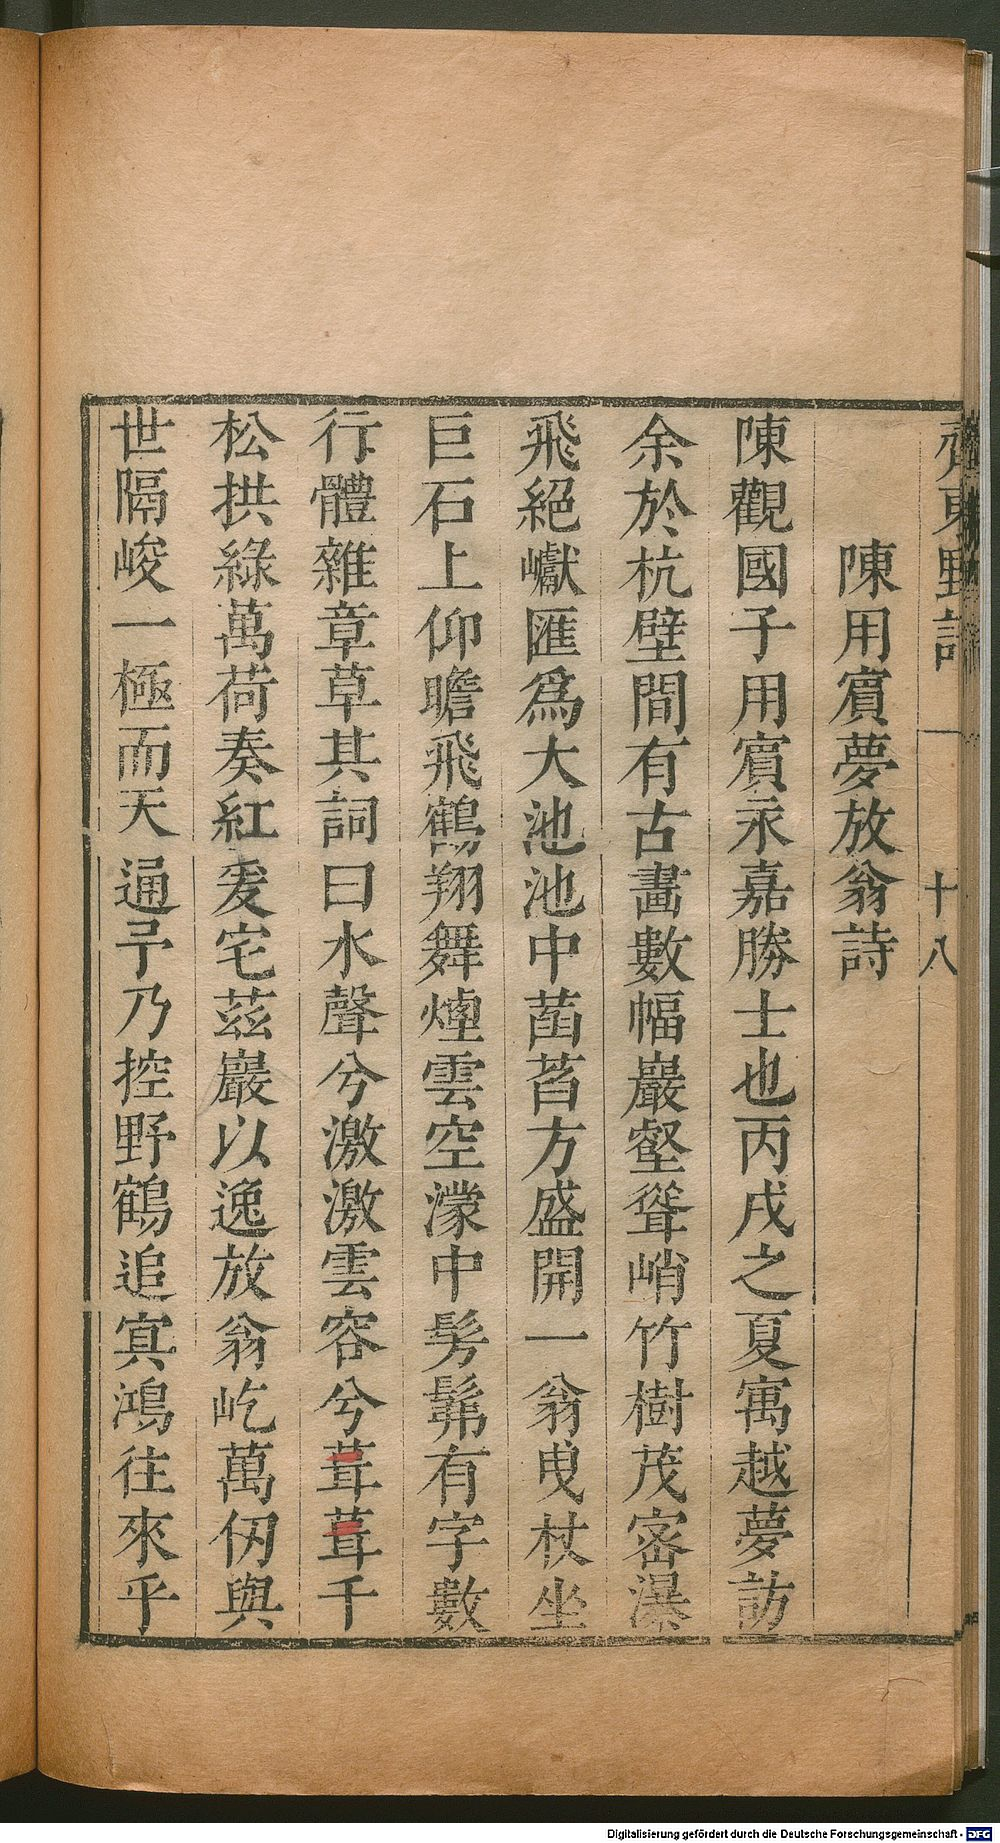 齊東野語 十八
陳用賔夢放翁詩
陳觀國子用賔永嘉勝士也丙戌之夏寓越夢訪
余於杭壁間有古畫數幅巖壑聳峭竹樹茂宻瀑
飛絕巘匯爲大池池中菡萏方盛開一翁曳杖坐
巨石上仰瞻飛鶴翔舞煙雲空濛中髣髴有字數
行體雜章草其詞曰水聲兮激激雲容兮茸茸千
松拱綠萬荷奏紅爰宅茲巖以逸放翁屹萬仞與
世隔峻一極而天通予乃控野鶴追㝠鴻往來乎
Digitalisierung gefördert durch die Deutsche Forschungsgemeinschaft - DFG